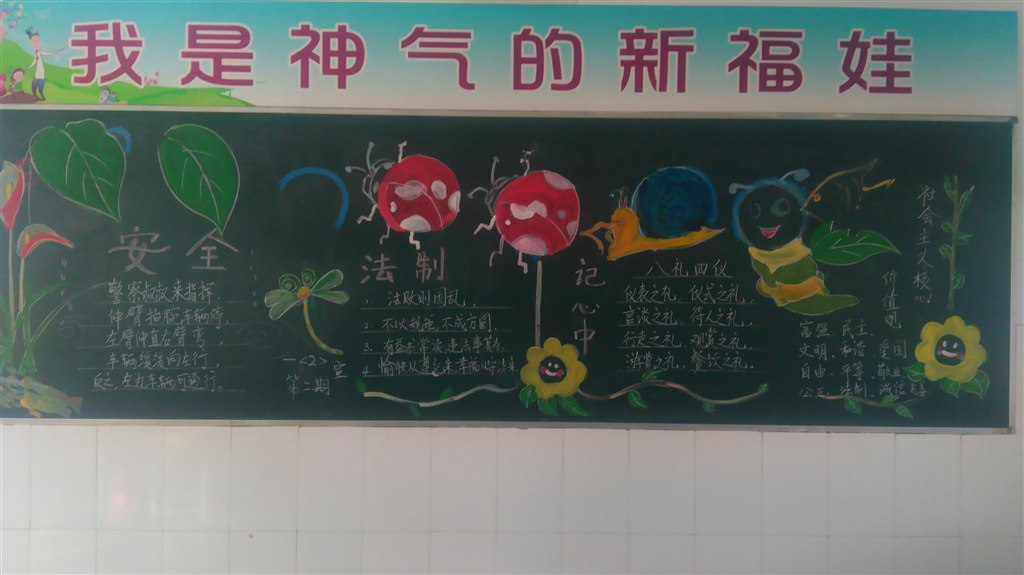 我是神气的新福娃
安全
警察叔叔来指挥，
伸臂抬腕车辆停，
左臂伸直右臂弯，
车辆缓缓向左行，
反之，左边车辆可直行。
一<2>宣
第二期
法制
1. 法败则国乱。
2. 不以规矩，不成方圆。
3.
4. 愉快从遵纪来 幸福从守法来
记心中
八礼四仪
仪表之礼，仪式之礼，
言谈之礼，待人之礼，
行走之礼，观赏之礼，
游览之礼，餐饮之礼。
社会主义核心
价值观
富强 民主
文明、和谐、爱国
自由、平等、敬业
公正、法制、诚信